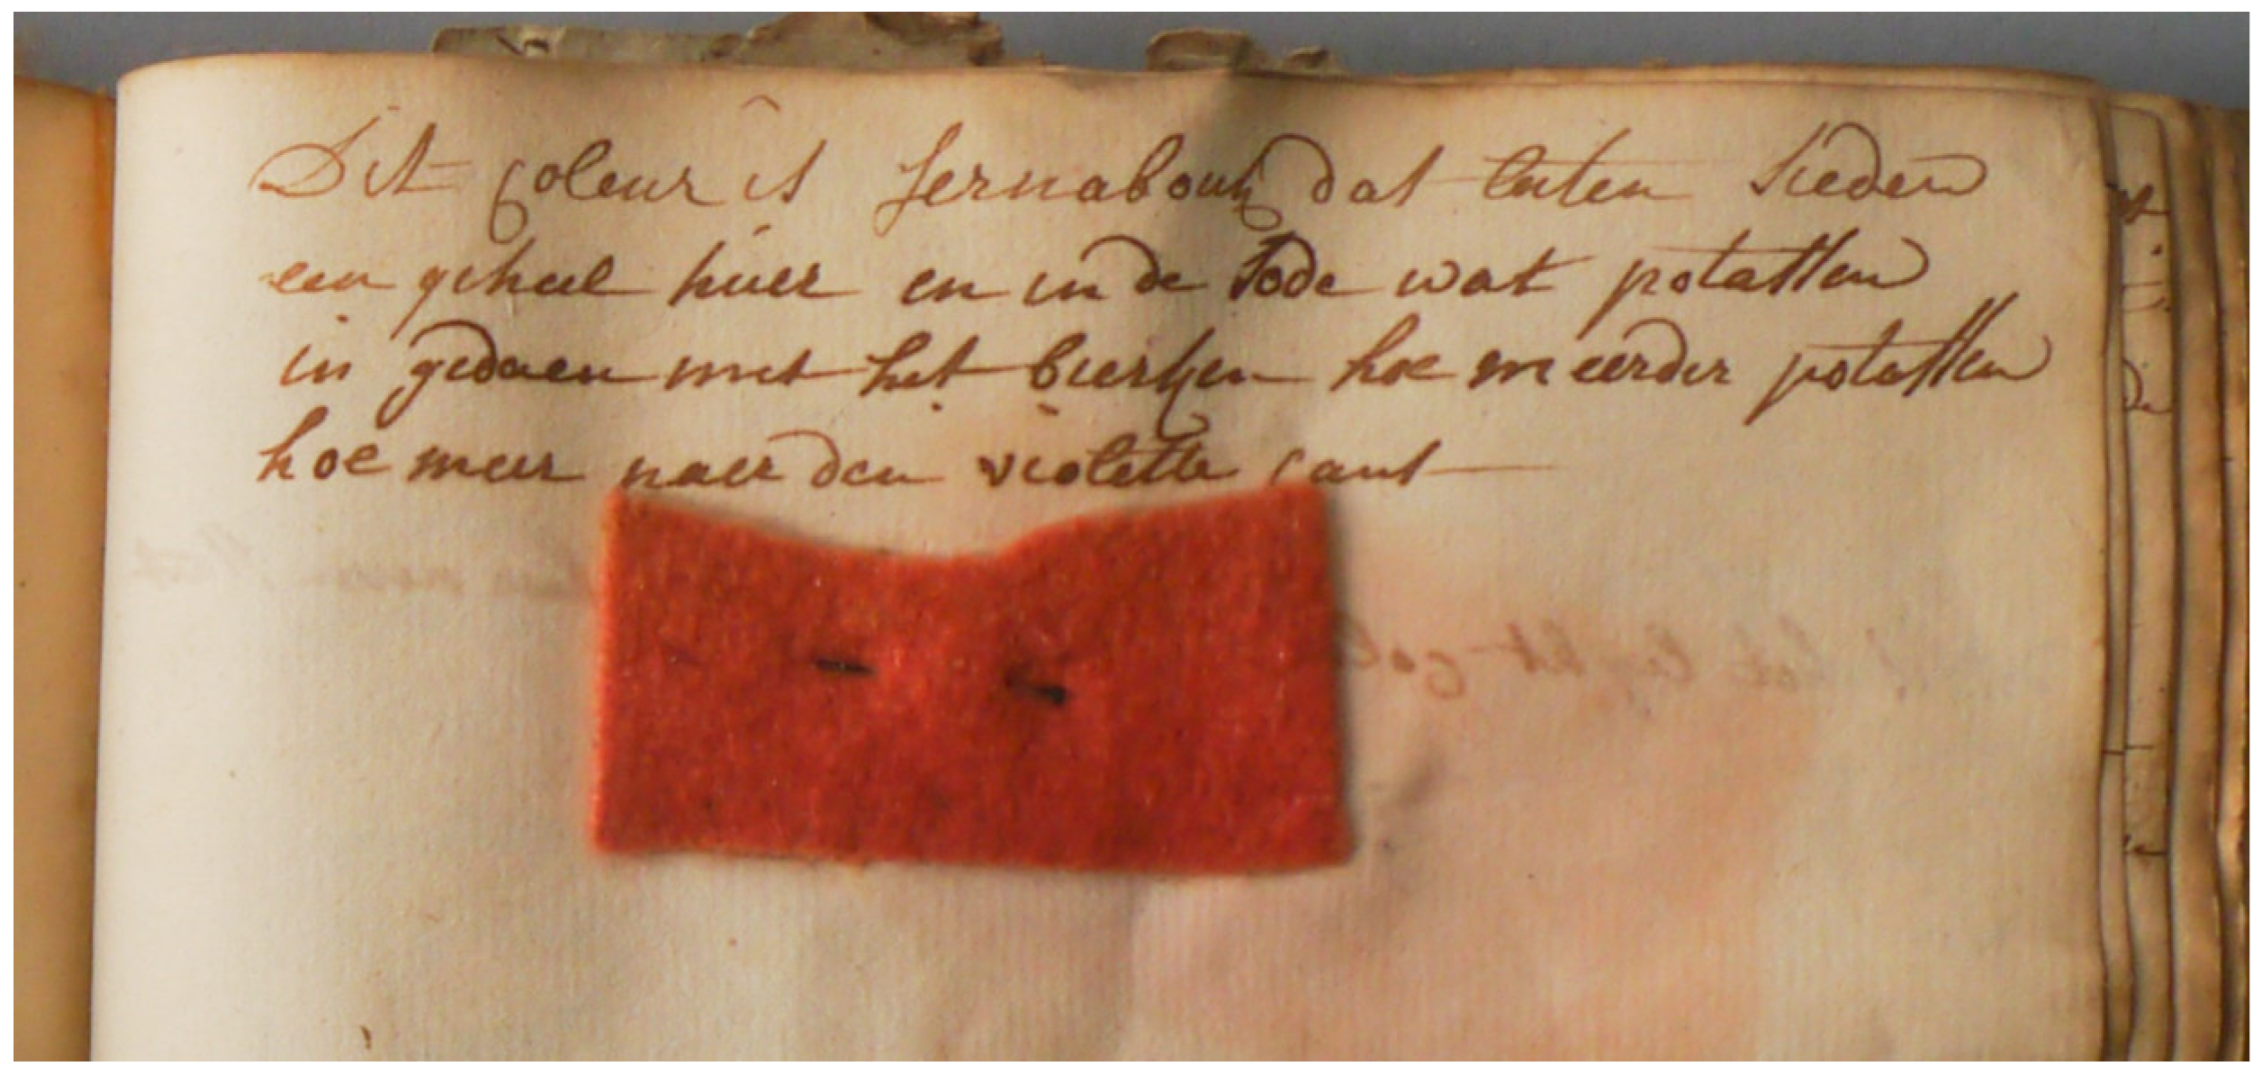 Dit coleur is fernabouk dat laten sieden
een geheel huer en in de sode wat potassen
in gedaen met het bierken hoe meerder potassen
hoe meer naer den violette cant